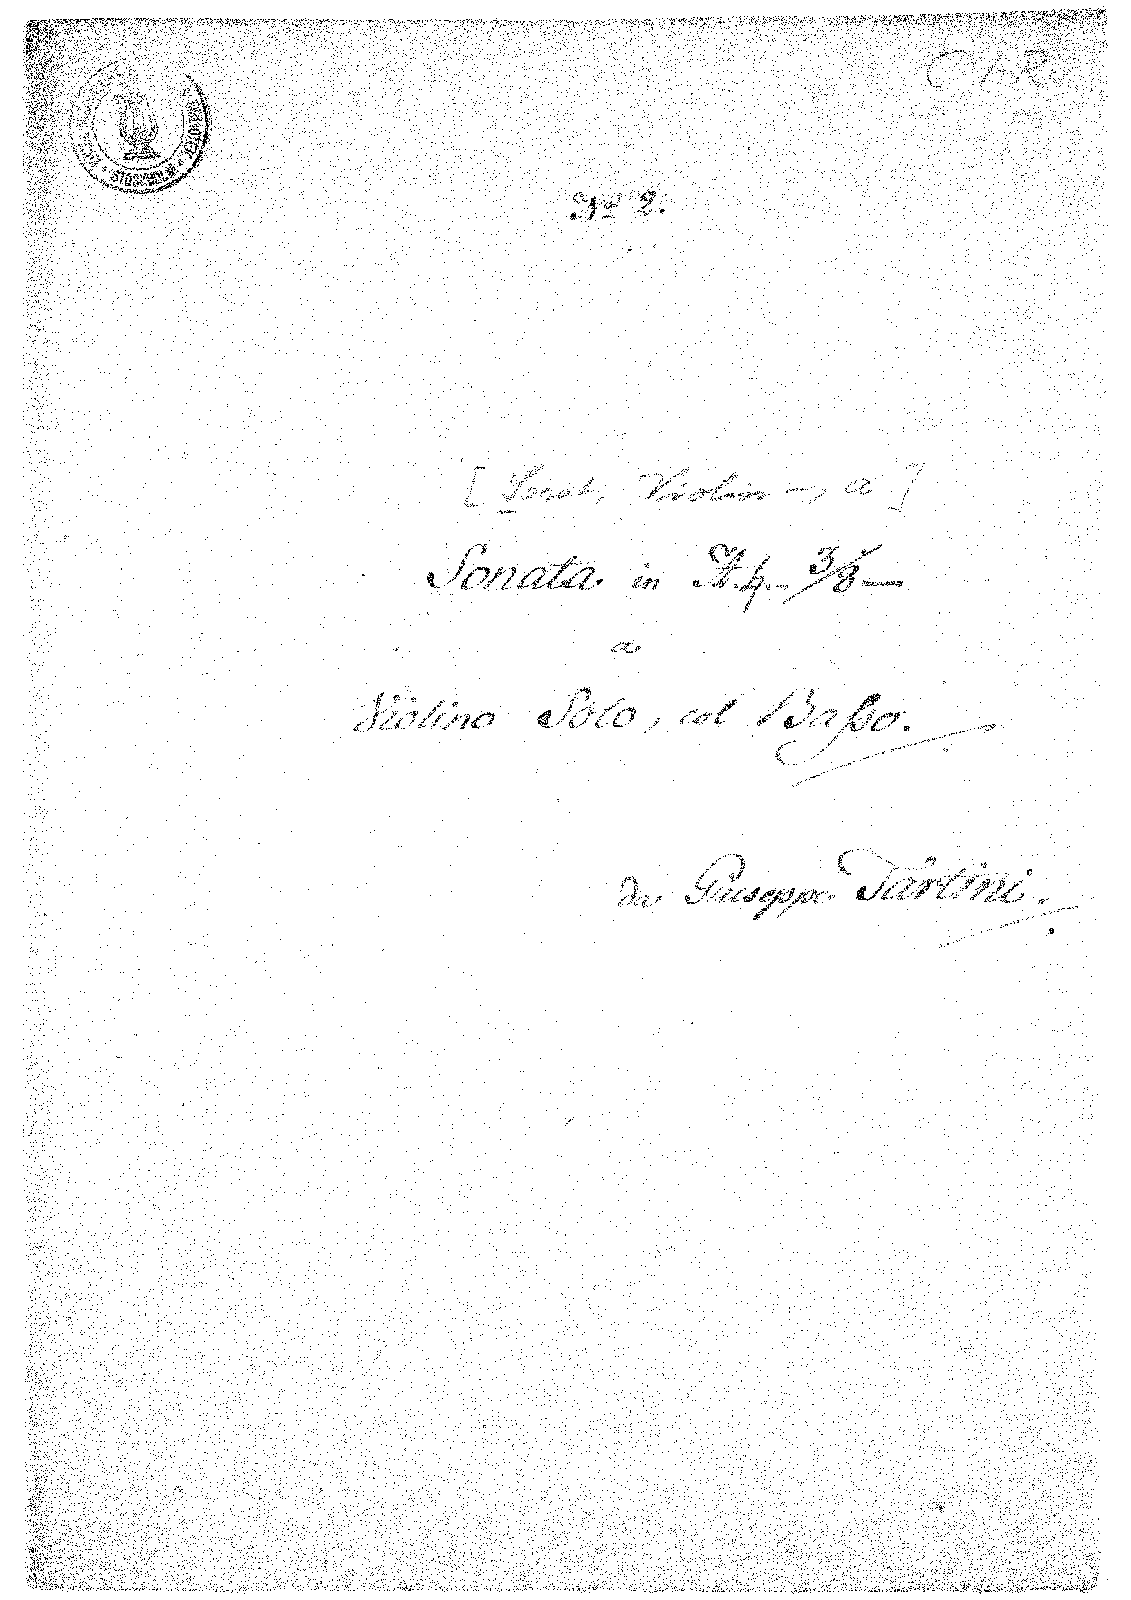 STOCKHOLM
C1-R
No 2.
[Sonat, Violin –, a]
Sonata in A.♮. 3/8 —
a
Violino Solo, col Basso.
da Giuseppe Tartini.